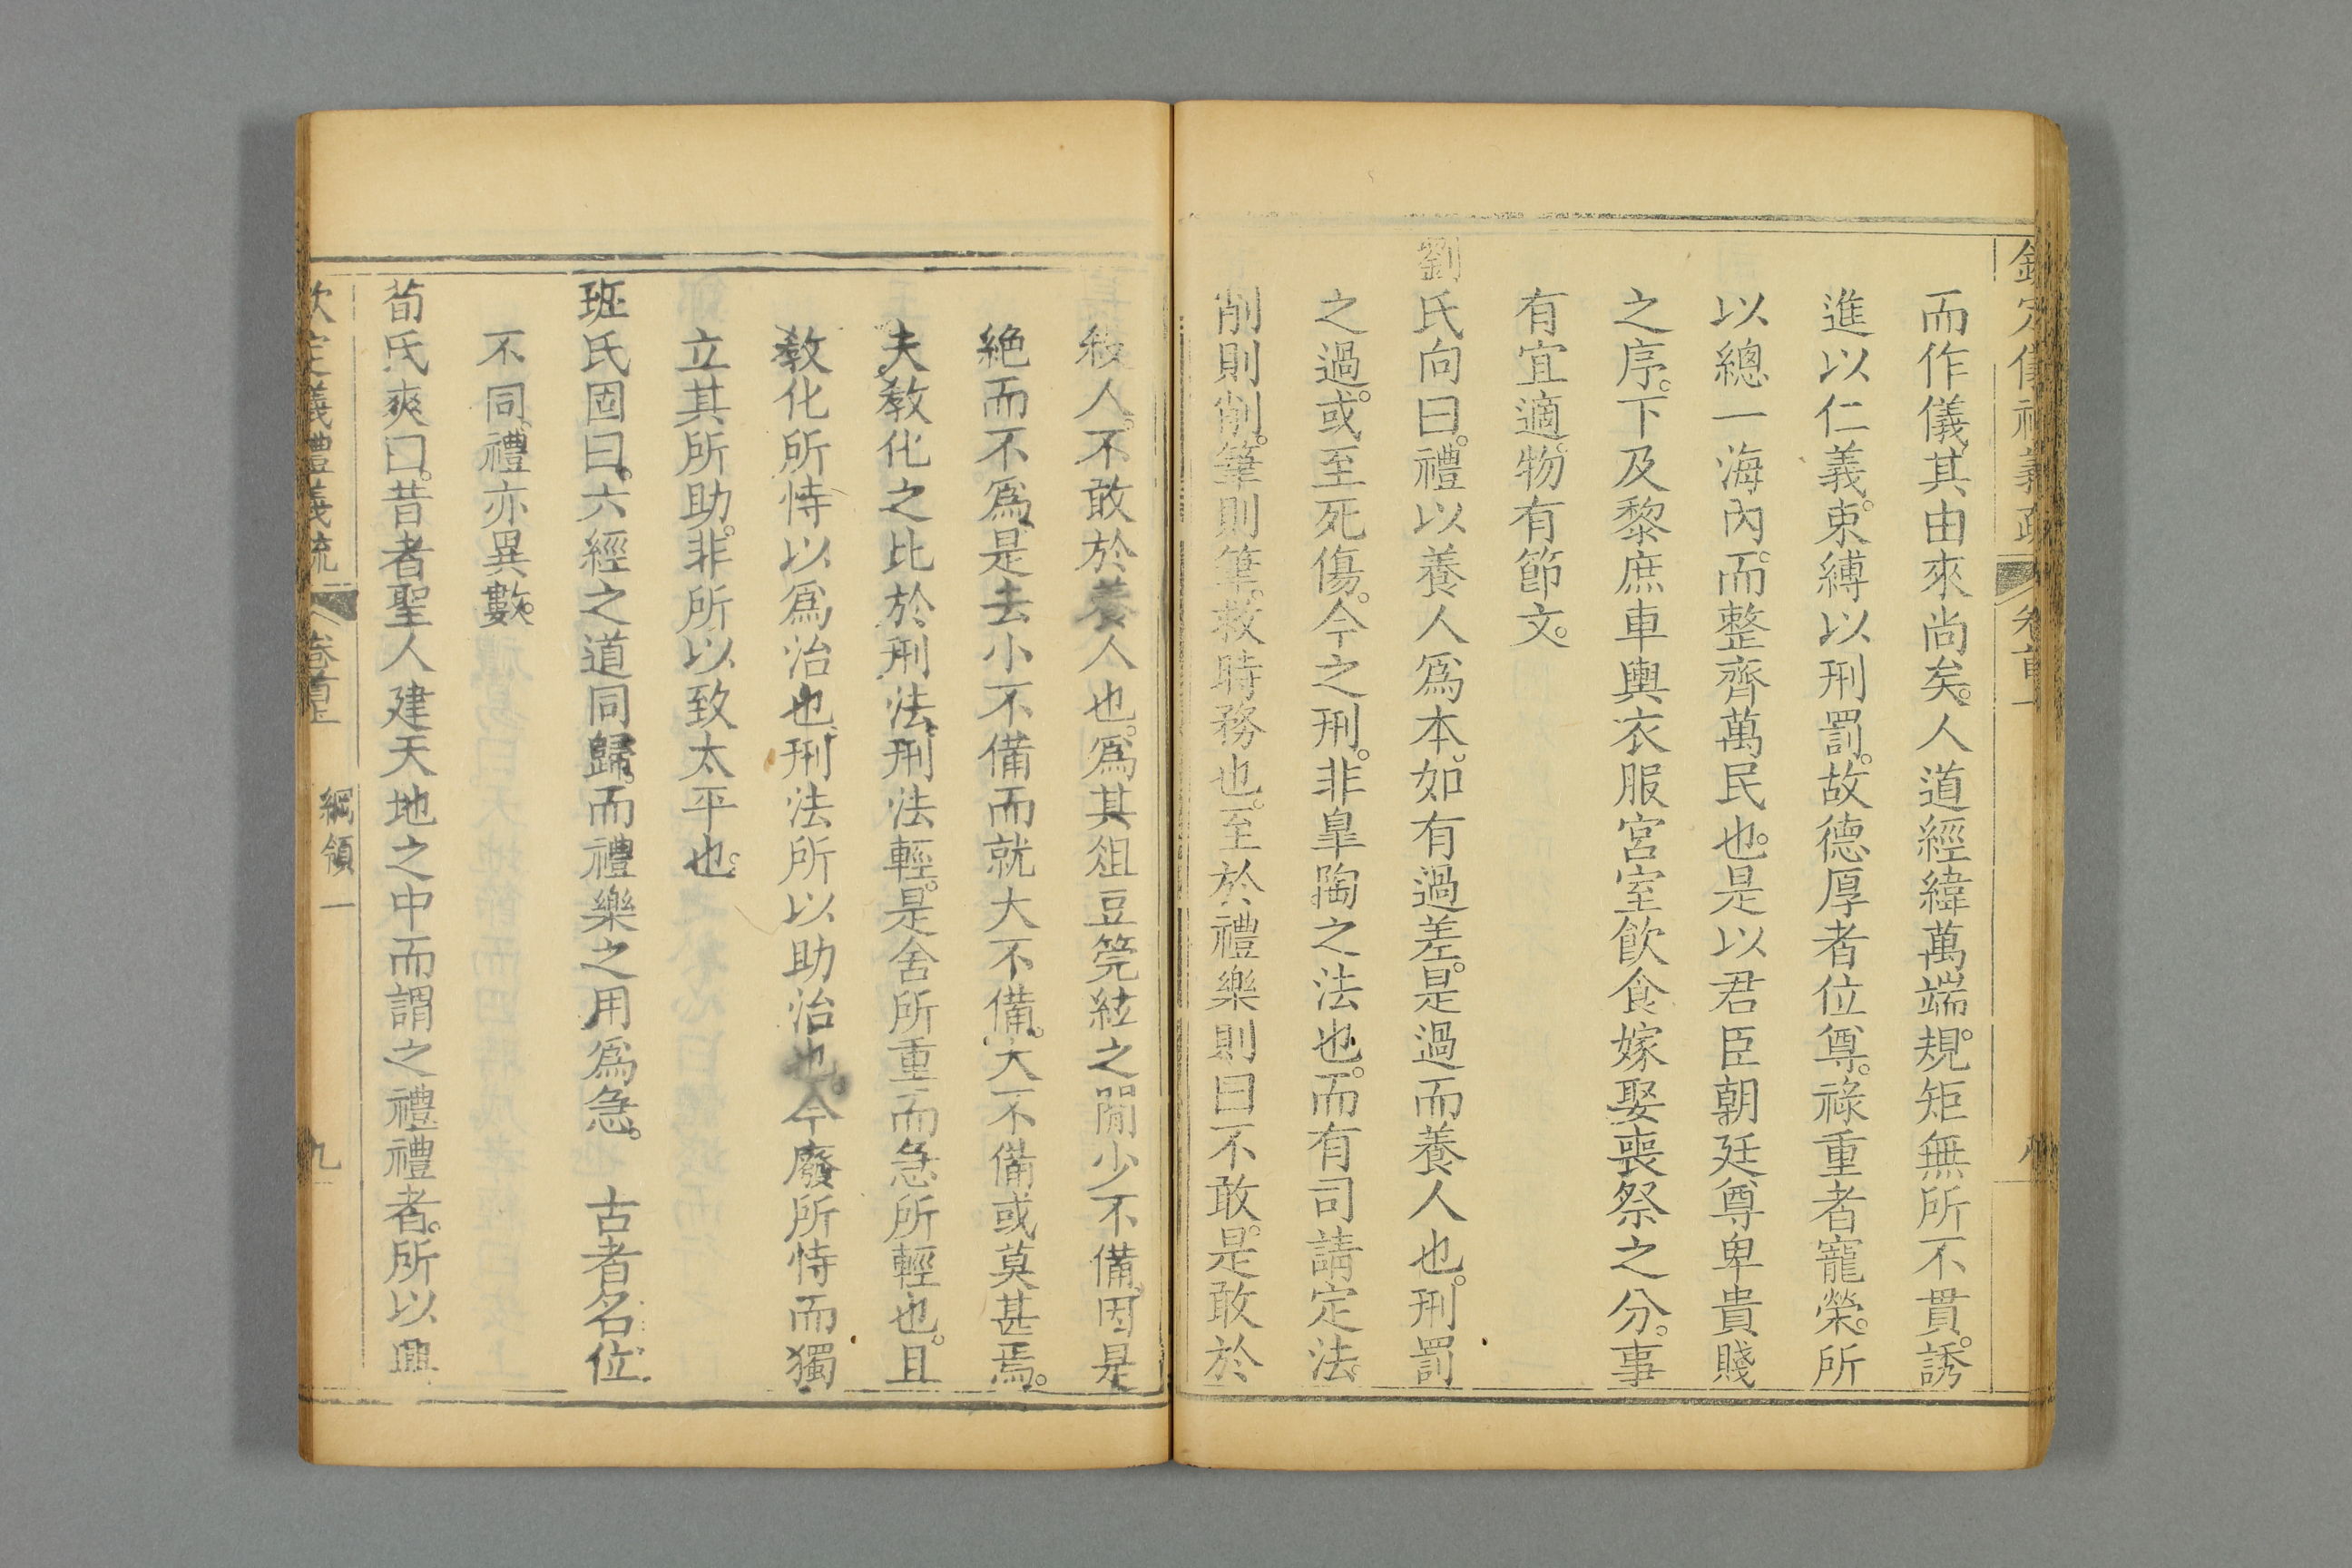 欽定儀禮義疏 卷首一
而作儀。其由來尚矣。人道經緯萬端。規矩無所不貫。誘
進以仁義。束縛以刑罰。故德厚者位尊。祿重者寵榮。所
以總一海內。而整齊萬民也。是以君臣朝廷尊卑貴賤
之序。下及黎庶車輿衣服宮室飲食嫁娶喪祭之分。事
有宜適。物有節文。
劉氏向曰。禮以養人爲本。如有過差。是過而養人也。刑罰
之過。或至死傷。今之刑。非皐陶之法也。而有司請定法。
削則削。筆則筆。救時務也。至於禮樂則曰不敢。是敢於
殺人。不敢於養人也。爲其俎豆筦絃之閒少不備。因是
絕而不爲。是去小不備而就大不備。大不備或莫甚焉。
夫敎化之比於刑法。刑法輕。是舍所重而急所輕也。且
敎化所恃以爲治也。刑法所以助治也。今廢所恃而獨
立其所助。非所以致太平也。
班氏固曰。六經之道同歸。而禮樂之用爲急。 古者名位
不同。禮亦異數。
荀氏爽曰。昔者聖人建天地之中而謂之禮。禮者。所以興
欽定儀禮義疏 卷首上 綱領一 九